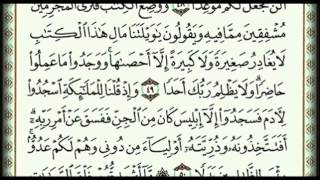 ألن نجعل لكم موعدا ٤٨ ووضع الكتب فترى المجرمين
مشفقين مما فيه ويقولون يويلتنا مال هذا الكتب
لا يغادر صغيرة ولا كبيرة إلا أحصىها ووجدوا ما عملوا
حاضرا ولا يظلم ربك أحدا ٤٩ وإذ قلنا للملئكة اسجدوا
لأدم فسجدوا إلا إبليس كان من الجن ففسق عن أمر ربه
أفتتخذونه وذريته أولياء من دوني وهم لكم عدو